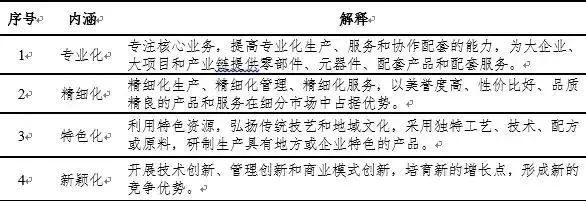 序号 内涵 解释
1 专业化 专注核心业务，提高专业化生产、服务和协作配套的能力，为大企业、
大项目和产业链提供零部件、元器件、配套产品和配套服务。
2 精细化 精细化生产、精细化管理、精细化服务，以美誉度高、性价比好、品质
精良的产品和服务在细分市场中占据优势。
3 特色化 利用特色资源，弘扬传统技艺和地域文化，采用独特工艺、技术、配方
或原料，研制生产具有地方或企业特色的产品。
4 新颖化 开展技术创新、管理创新和商业模式创新，培育新的增长点，形成新的
竞争优势。